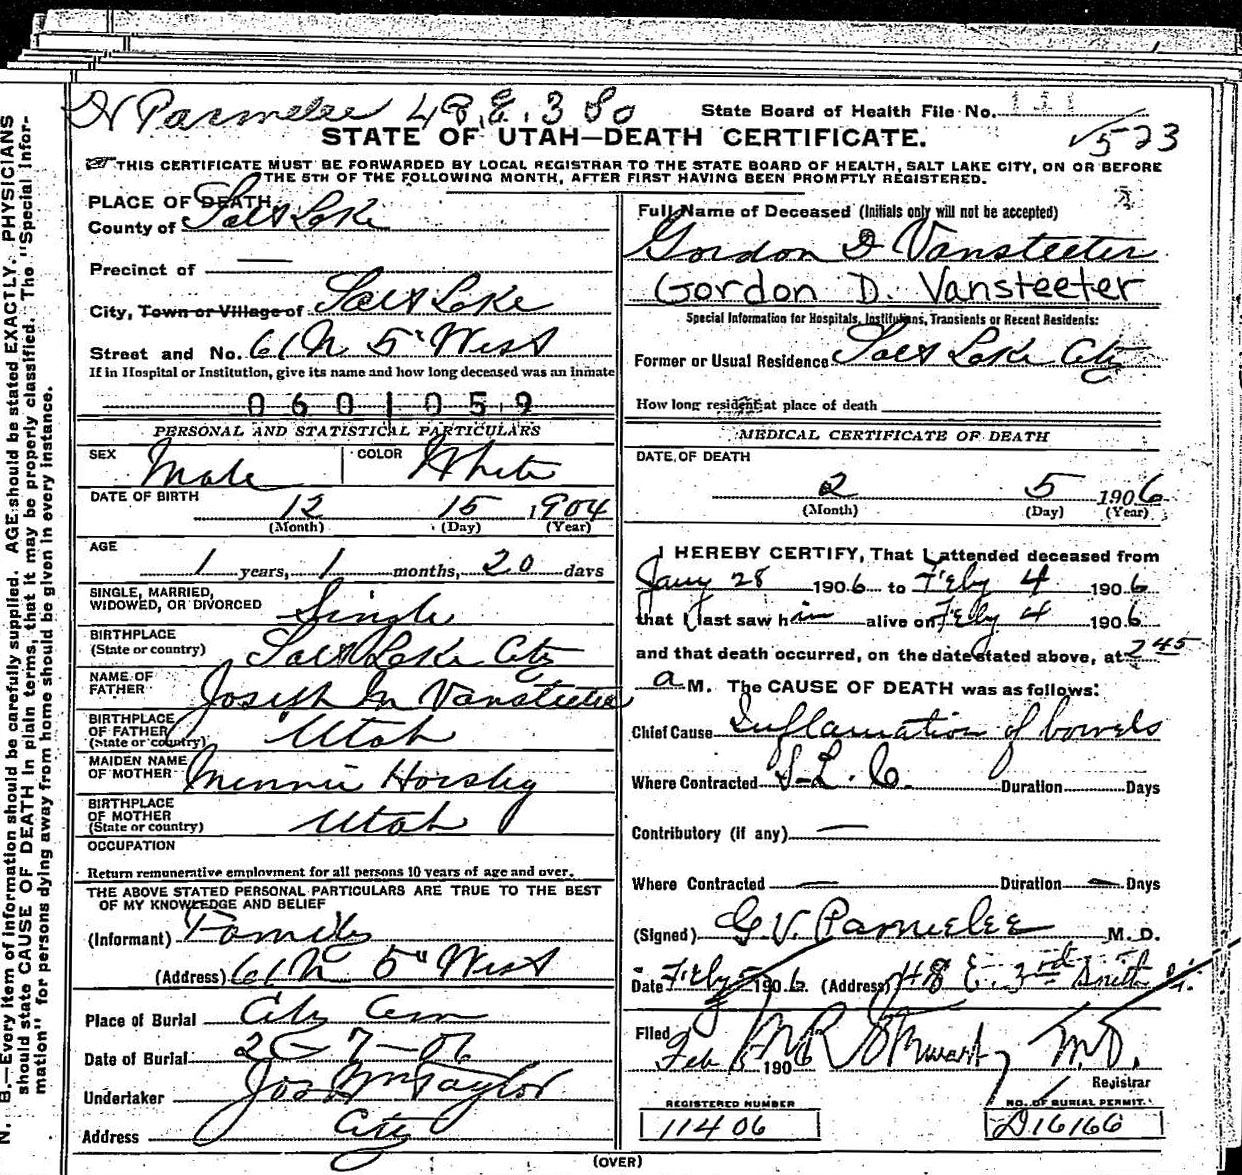 Parmelee 48. E. 3 So
State Board of Health File No. 111
STATE OF UTAH—DEATH CERTIFICATE.
√523
☞ THIS CERTIFICATE MUST BE FORWARDED BY LOCAL REGISTRAR TO THE STATE BOARD OF HEALTH, SALT LAKE CITY, ON OR BEFORE
THE 5TH OF THE FOLLOWING MONTH, AFTER FIRST HAVING BEEN PROMPTLY REGISTERED.
PLACE OF DEATH
County of Salt Lake
Precinct of —
City, Town or Village of Salt Lake
Street and No. 61 N 5" West
If in Hospital or Institution, give its name and how long deceased was an inmate
0601059
PERSONAL AND STATISTICAL PARTICULARS
SEX Male COLOR White
DATE OF BIRTH
12 15 1904
(Month) (Day) (Year)
AGE
1 years, 1 months, 20 days
SINGLE, MARRIED,
WIDOWED, OR DIVORCED Single
BIRTHPLACE
(State or country) Salt Lake City
NAME OF
FATHER Joseph M Vansteeter
BIRTHPLACE
OF FATHER
(State or country) Utah
MAIDEN NAME
OF MOTHER Minnie Horsley
BIRTHPLACE
OF MOTHER
(State or country) Utah
OCCUPATION
Return remunerative employment for all persons 10 years of age and over.
THE ABOVE STATED PERSONAL PARTICULARS ARE TRUE TO THE BEST
OF MY KNOWLEDGE AND BELIEF
(Informant) Family
(Address) 61 N 5" West
Place of Burial City Cem
Date of Burial 2-7-06
Undertaker Jos Wm Taylor
Address City
Full Name of Deceased (Initials only will not be accepted)
Gordon D Vansteeter
Gordon D. Vansteeter
Special Information for Hospitals, Institutions, Transients or Recent Residents:
Former or Usual Residence Salt Lake City
How long resident at place of death
MEDICAL CERTIFICATE OF DEATH
DATE OF DEATH
2 5 1906
(Month) (Day) (Year)
I HEREBY CERTIFY, That I attended deceased from
Jany 28 1906 to Feby 4 1906
that I last saw him alive on Feby 4 1906
and that death occurred, on the date stated above, at 2 45
a M. The CAUSE OF DEATH was as follows:
Chief Cause Inflamation of bowels
Where Contracted S.L.C. Duration Days
Contributory (if any) —
Where Contracted — Duration — Days
(Signed) G. V. Parmelee M. D.
Date Feby 5 1906. (Address) 48 E. 3rd South St.
Filed Feb 1906 M R Stewart, M.D.
Registrar
REGISTERED NUMBER
11406
NO. OF BURIAL PERMIT.
D16166
(OVER)
N. B.—Every item of information should be carefully supplied. AGE should be stated EXACTLY. PHYSICIANS
should state CAUSE OF DEATH in plain terms, that it may be properly classified. The "Special Infor-
mation" for persons dying away from home should be given in every instance.